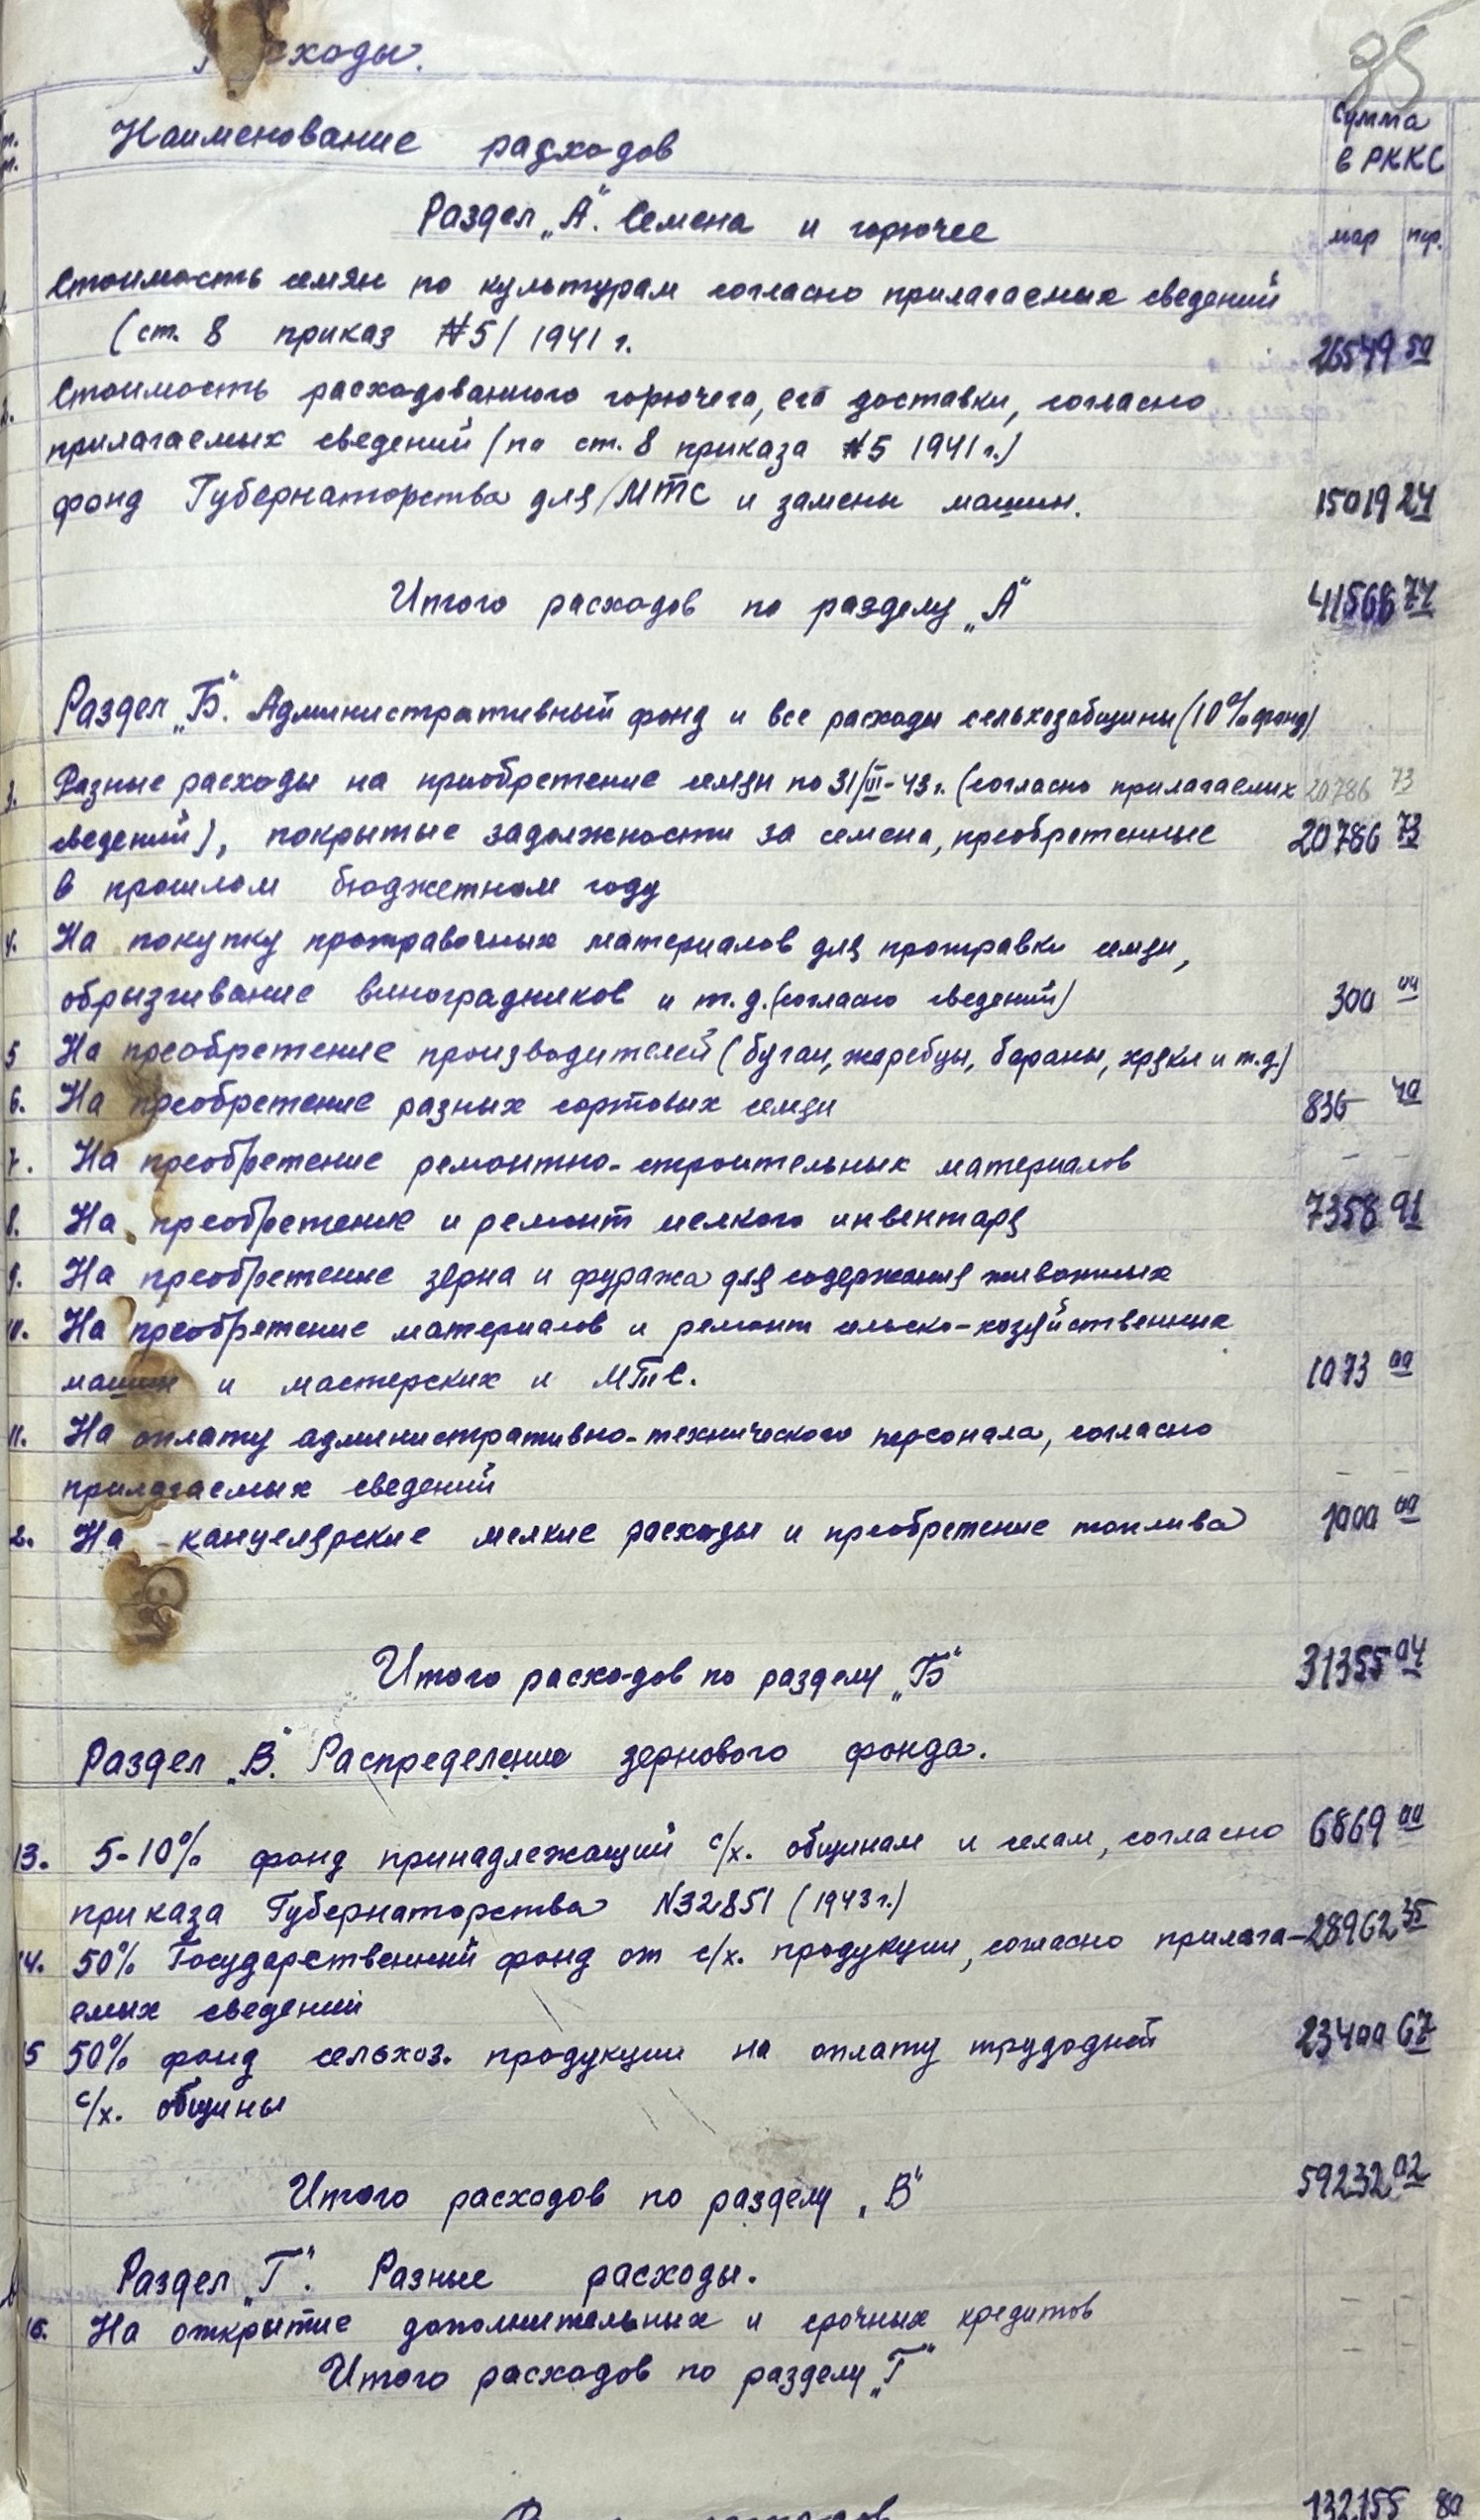 Расходы.
35
Наименование расходов
Сумма в РККС
Раздел „А“. Семена и горючее
мар пф.
Стоимость семян по культурам согласно прилагаемых сведений
(ст. 8 приказ №5/1941 г. 26549 50
2. Стоимость расходованного горючего, его доставки, согласно
прилагаемых сведений (по ст. 8 приказа №5 1941 г.)
фонд Губернаторства для МТС и замены машин. 15019 24
Итого расходов по разделу „А“ 41568 74
Раздел „Б“. Административный фонд и все расходы сельхозобщины (10% фонд)
3. Разные расходы на приобретение семян по 31/III-43 г. (согласно прилагаемых 20786 73
сведений), покрытые задолжности за семена, преобретенные 20786 73
в прошлом бюджетном году
4. На покупку протравочных материалов для протравки семян,
обрызгивание виноградников и т.д. (согласно сведений) 300 00
5 На преобретение производителей (бугаи, жеребцы, бараны, хряки и т.д.)
6. На преобретение разных сортовых семян 836 40
7. На преобретение ремонтно-строительных материалов - -
8. На преобретение и ремонт мелкого инвентаря 7358 91
9. На преобретение зерна и фуража для содержания животных
10. На преобретение материалов и ремонт сельско-хозяйственных
машин и мастерских и МТС. 1073 00
11. На оплату административно-технического персонала, согласно
прилагаемых сведений - -
2. На канцелярские мелкие расходы и преобретение топлива 1000 00
Итого расходов по разделу „Б“ 31355 04
Раздел „В“. Распределение зернового фонда.
13. 5-10% фонд принадлежащий с/х. общинам и селам, согласно 6869 00
приказа Губернаторства №32851 (1943 г.)
14. 50% Государственный фонд от с/х. продукции, согласно прилага- 28962 35
емых сведений
15 50% фонд сельхоз. продукции на оплату трудодней 23400 67
с/х. общины
Итого расходов по разделу „В“ 59232 02
Раздел „Г“. Разные расходы.
16. На открытие дополнительных и срочных кредитов - -
Итого расходов по разделу „Г“ - -
132155 80